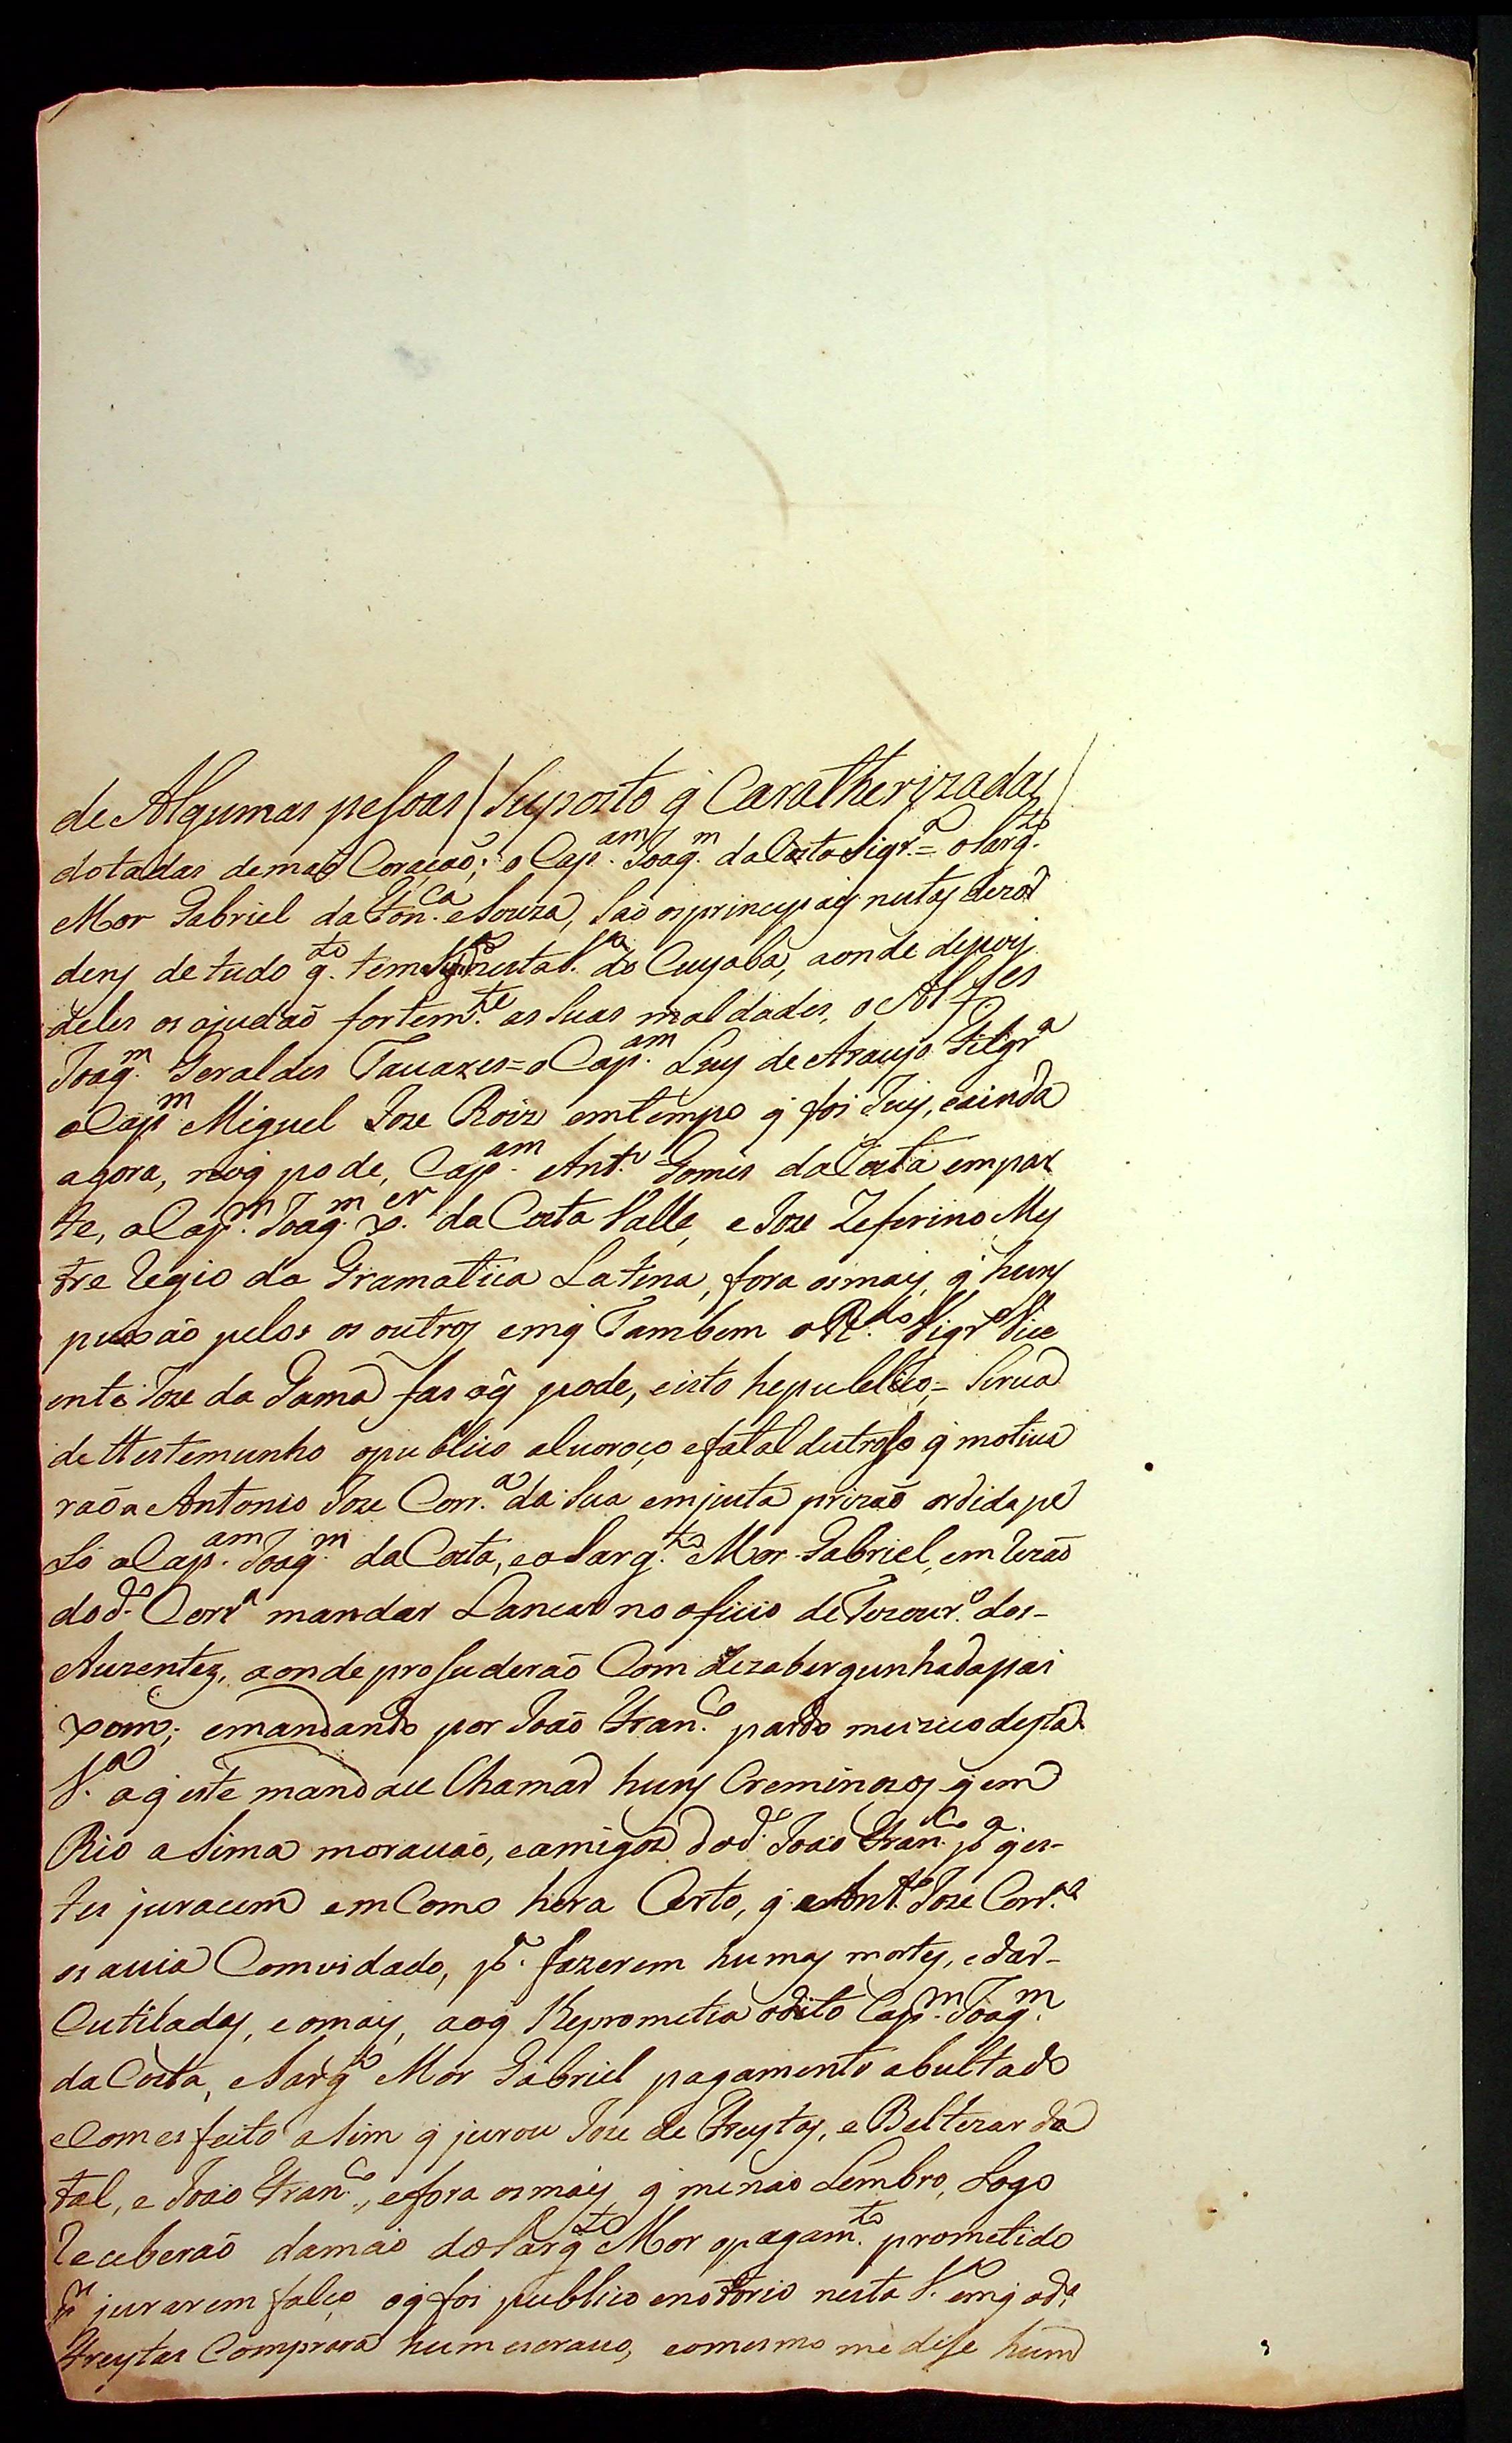 de Algumas pessoas / Suposto q̃ Caratherizadas /
dotadas de mao Coração; o Cap.am Joaq.m da Costa Siqr.a = o Sarg.to
Mor Gabriel da Fon.ca e Souza, São os principais nestas dezor
dens de tudo q.to tem nesta V.a do Cuyabá, aonde depois
deles os ajudaõ fortem.te as Suas maldades, o Alferes
Joaq.m Geraldes Tauares = o Cap.am Luis de Araujo Filgr.a
o Cap.m Miguel Joze Roiz emtempo q̃ foi Juis, eainda
agora, no q̃ pode, Cap.am Ant.o Gomes da Costa empar
te, o Cap.m Joaq.m X.er da Costa Valle, e Joze Zeferino Mes
tre Regio da Gramatica Latina, fora os mais, q̃ huns
puxão pelos os outros emq̃ Tambem o R.do Vigr.o Vice
ente Joze da Gama fas oq̃ pode, eisto hepublico; = Sirua
dettestemunho opublico aluoroço efatal destrosso q̃ motiua
raõ a Antonio Joze Corr.a da Sua emjusta prizaõ ordida pe
Lo o Cap.am Joaq.m da Costa, eo Sarg.to Mor Gabriel, em rezaõ
do d.o Corr.a mandar Lancar no oficio de Tezour.o dos-
Auzentes, aonde prosuderaõ Com dezabergunhada pai
xom; emandando por João Fran.co pardo meirico desta
V.a a q̃ este mandace Chamar huns Creminozos q̃ em
Rio a Sima morauaõ, eamigos do d.o João Fran.co p.a q̃ es-
tes juracem em Como hera Certo, q̃ Ant.o Joze Corr.a
os auia Comuidado, p.a fazerem humas mortes, e dar-
Cutiladas, eomais, aoq̃ Reprometia odito Cap.m Joaq.m
da Costa, e Sarg.to Mor Gabriel pagamento abultado
eComesfeito a Sim q̃ jurou Joze de Freytas, e Beltezar de
tal, e João Fran.co, efora osmais q̃ menaõ Lembro, Logo
Receberaõ damaõ do Sarg.to Mor opagam.to prometido
p.a jurarem falço oq̃ foi publico enotorio nesta V.a emq̃ o d.o
Freytas Comprara hum escrauo, eomesmo me disse hum